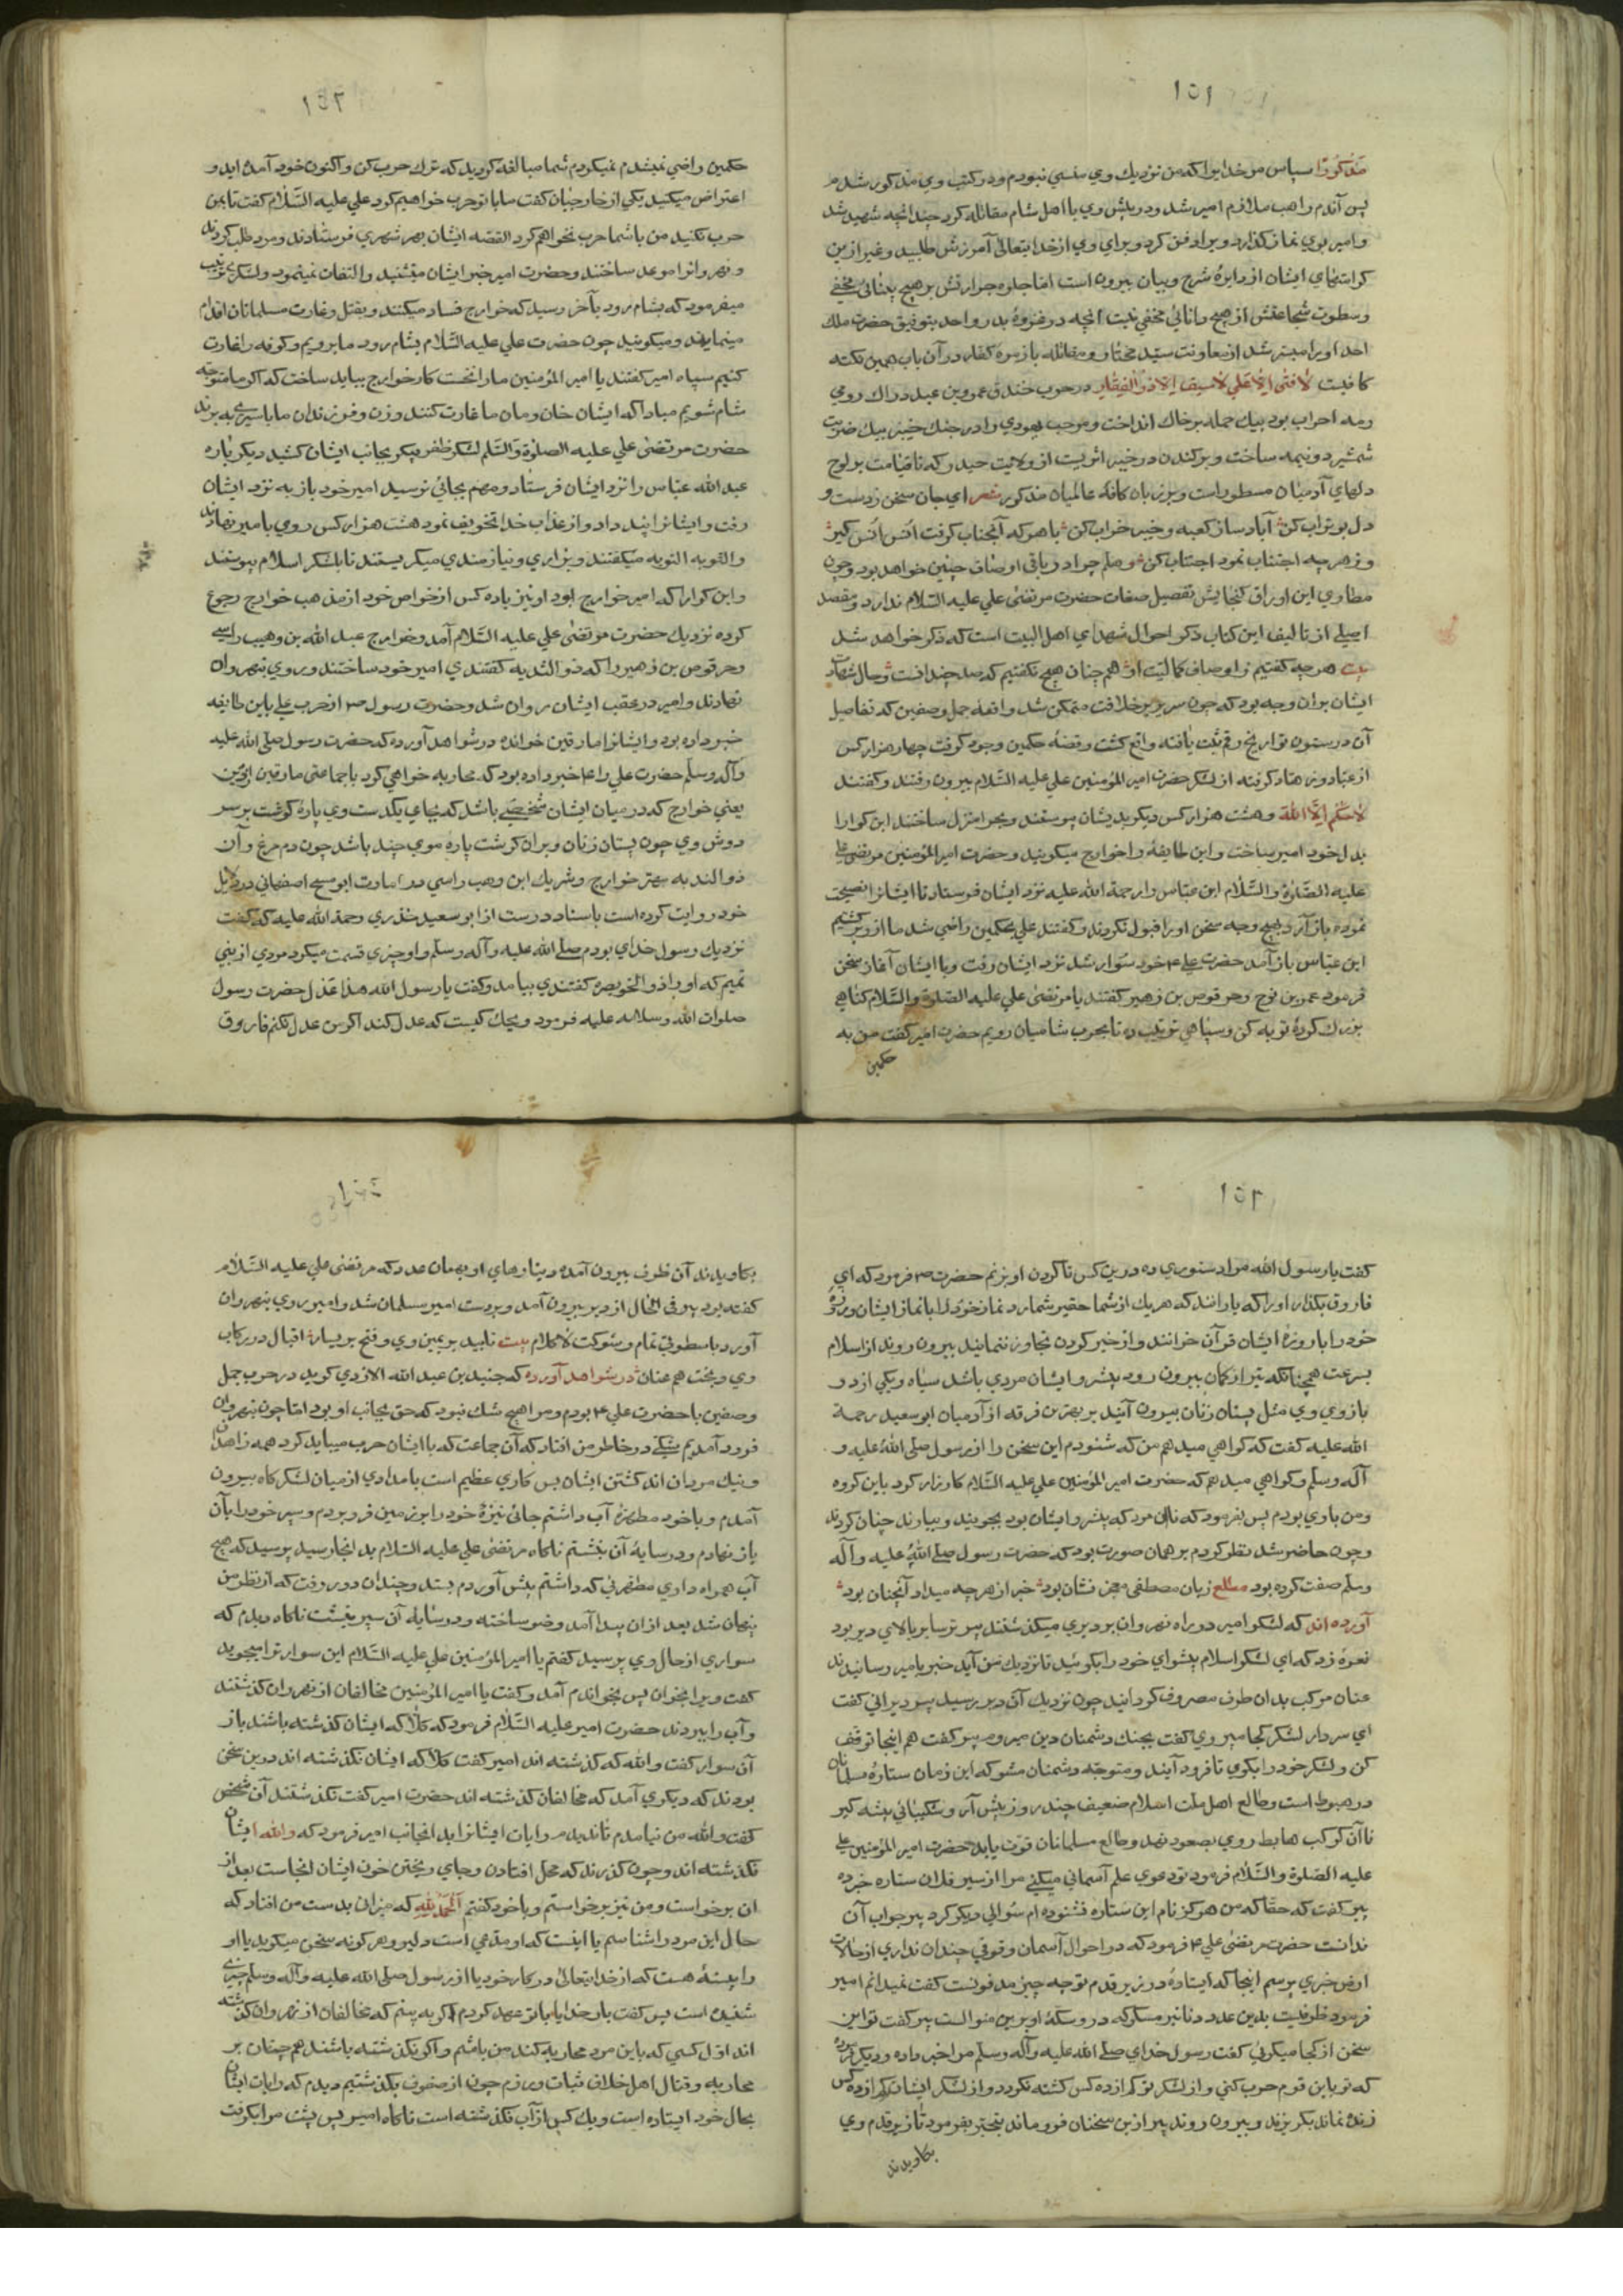 ١٥١
مذكورا سپاس مر خدايرا كه من نزديك وي منسي نبودم ودر كتب وي مذكور شدم
پس آندم راهب ملازم امير شد ودر پيش وي با اهل شام مقاتله كرد چندانچه شهيد شد
وامير بوي نماز كذارد ويرا دفن كرد وبراي وي از خدايتعالى آمرزش طلبيد وغير ازين
كرامتهاي ايشان از دايرهٔ شرح وبيان بيرون است اما جلوه جوارتش بر هيچ
وسطوت شجاعتش از هيچ دانائي مخفي نيست آنچه در غزوهٔ بدر واحد بتوفيق حضرت ملك
احد او را ميسر شد از معاونت سيد مختار ومقاتله با زمره كفار در آن باب همين نكته
كافيست لا فتى الا علي لا سيف الا ذو الفقار در حرب خندق عمرو بن عبد ود را كه رومي
رمه احزاب بود بيك حمله بر خاك انداخت ومرحب يهودي را در جنك خيبر بيك ضربت
شمشير دو نيمه ساخت وبركندن در خيبر اثريست از ولايت حيدر كه تا قيامت بر لوح
دلهاي آدميان مسطور است وبر زبان كافهٔ عالميان مذكور شعر اي جان سخن ز دست و
دل بو تراب كن آباد ساز كعبه وخيبر خراب كن با هر كه آنجناب كرفت انس انس كير
وز هر چه اجتناب نمود اجتناب كن وهلم جرا در باقي اوصاف چنين خواهد بود وچون
مطاوي اين اوراق كنجايش تفصيل صفات حضرت مرتضى علي عليه السلام ندارد ومقصد
اصلي از تاليف اين كتاب ذكر احوال شهداي اهل البيت است كه ذكر خواهد شد
بيت هر چه كفتيم ز اوصاف كماليت او همچنان هيچ نكفتيم كه صد چندانست وحال شهادت
ايشان بر ان وجه بود كه چون سرير بر خلافت متمكن شد واقعهٔ جمل وصفين كه تفاصيل
آن در متون تواريخ رقم ثبت يافته واقع كشت وقصهٔ حكمين وجود كرفت چهار هزار كس
از عباد وزهاد كرفته از لشكر حضرت امير المؤمنين علي عليه السلام بيرون رفتند وكفتند
لا حكم الا الله وهشت هزار كس ديكر بديشان پيوستند وبحرا منزل ساختند ابن كوا را
بدل خود امير ساخت واين طايفه را خوارج ميكويند وحضرت امير المؤمنين مرتضى علي
عليه الصلوة والسلام ابن عباس را رحمة الله عليه نزد ايشان فرستاد تا ايشانرا نصيحت
نموده باز آرد بهيچ وجه سخن او را قبول نكردند وكفتند علي بحكمين راضي شد ما از وي بركشتيم
ابن عباس باز آمد حضرت علي ع خود سوار شد نزد ايشان رفت وبا ايشان آغاز سخن
فرمود وحرقوص بن زهير كفتند يا مرتضى علي عليه الصلوة والسلام كناهي
بزرك كردهٔ توبه كن وسپاهي ترتيب ده تا بحرب شاميان رويم حضرت امير كفت من به
حكمين
١٥٢
حكمين راضي نميشدم نميكردم شما مبالغه كرديد كه ترك حرب كن واكنون خود آمده ايد و
اعتراض ميكنيد يكي از خارجيان كفت ما با تو حرب خواهيم كرد علي عليه السلام كفت تا بمن
حرب نكنيد من با شما حرب نخواهم كرد القصه ايشان بهر شهري فرستادند ومرد طلب كردند
ونهروانرا موعد ساختند وحضرت امير خبر ايشان ميشنيد والتفات نمينمود ولشكري ترتيب
ميفرمود كه بشام رود بآخر رسيد كه خوارج فساد ميكنند وبقتل وغارت مسلمانان اقدام
مينمايند وميكويند چون حضرت علي عليه السلام بشام رود ما برويم وكوفه را غارت
كنيم سپاه امير كفتند يا امير المؤمنين ما را نخست كار خوارج ببايد ساخت كه اكر ما متوجه
شام شويم مبادا كه ايشان خان ومان ما غارت كنند وزن وفرزندان ما باسيري به برند
حضرت مرتضى علي عليه الصلوة والسلام لشكر ظفر پيكر بجانب ايشان كشيد ديكر باره
عبد الله عباس را نزد ايشان فرستاد ومهم بجائي نرسيد امير خود باز به نزد ايشان
رفت وايشانرا پند داد واز عذاب خدا تخويف نمود هشت هزار كس روي بامير نهادند
والتوبه التوبه ميكفتند وبزاري ونيازمندي ميكريستند تا بلشكر اسلام پيوستند
وابن كوا را كه امير خوارج بود او نيز با ده كس از خواص خود از مذهب خوارج رجوع
كرده نزديك حضرت مرتضى علي عليه السلام آمد وخوارج عبد الله بن وهيب راسبي
وحرقوص بن زهير را كه ذو الثديه كفتندي امير خود ساختند وبروي بنهروان
نهادند وامير در عقب ايشان روان شد وحضرت رسول ص از حرب علي باين طايفه
خبر داده بود وايشانرا مارقين خوانده در شواهد آورده كه حضرت رسول صلى الله عليه
وآله وسلم حضرت علي را ع خبر داده بود كه محاربه خواهي كرد با جماعتي مارقين از دين
يعني خوارج كه در ميان ايشان شخصي باشد كه بجاي يكدست وي پارهٔ كوشت بر سر
دوش وي چون پستان زنان وبر ان كوشت پاره موي چند باشد چون دم مرغ وآن
ذو الثديه مهتر خوارج وشريك ابن وهب راسبي در امارت ابو سبح اصفهاني در دلايل
خود روايت كرده است باسناد درست از ابو سعيد خذري رحمة الله عليه كه كفت
نزديك رسول خداي بودم صلى الله عليه وآله وسلم واو چيزي قسمت ميكرد مردي از بني
تميم كه او را ذو الخويصره كفتندي بيامد وكفت يا رسول الله هذا عدل حضرت رسول
صلوات الله وسلامه عليه فرمود ويحك كيست كه عدل كند اكر من عدل نكنم فاروق
١٥٣
كفت يا رسول الله مرا دستوري ده در ين كس تا كردن او بزنم حضرت ص فرمود كه اي
فاروق بكذار او را كه يارانند كه هر يك از شما حقير شمارد نماز خود را با نماز ايشان وروزهٔ
خود را با روزهٔ ايشان قرآن خوانند واز خير كردن تجاوز ننمايند بيرون روند از اسلام
بسرعت همچنانكه تير از كمان بيرون رود پيشرو ايشان مردي باشد سياه ويكي از دو
بازوي وي مثل پستان زنان بيرون آيند بر بهترين فرقه از آدميان ابو سعيد رحمة
الله عليه كفت كه كواهي ميدهم من كه شنودم اين سخن را از رسول صلى الله عليه و
آله وسلم وكواهي ميدهم كه حضرت امير المؤمنين علي عليه السلام كارزار كرد باين كروه
ومن با وي بودم پس بفرمود كه تا ان مرد كه پيشرو ايشان بود بجويند وبيارند چنان كردند
وچون حاضر شد نظر كردم بر همان صورت بود كه حضرت رسول صلى الله عليه وآله
وسلم صفت كرده بود مطلع زبان مصطفى معجز نشان بود خبر از هر چه ميداد آنچنان بود
آورده اند كه لشكر امير در راه نهروان بر ديري ميكذشتند پير ترسا بر بالاي دير بود
نعره زد كه اي لشكر اسلام پيشواي خود را بكوئيد تا نزديك من آيد خبر بامير رسانيدند
عنان مركب بدان طرف مصروف كردانيد چون نزديك آن دير رسيد پير ديراني كفت
اي سردار لشكر كجا ميروي كفت بجنك دشمنان دين ميروم پير كفت هم اينجا توقف
كن ولشكر خود را بكوي تا فرود آيند ومتوجه دشمنان مشو كه اين زمان ستارهٔ مسلمانان
در هبوط است وطالع اهل ملت اسلام ضعيف چند روز پيش آر وشكيبائي پيشه كير
تا آن كوكب هابط روي بصعود نهد وطالع مسلمانان قوت يابد حضرت امير المؤمنين علي
عليه الصلوة والسلام فرمود تو دعوي علم آسماني ميكني مرا از سير فلان ستاره خبر ده
پير كفت كه حقا كه من هركز نام اين ستاره نشنوده ام سوالي ديكر كرد پير جواب آن
ندانست حضرت مرتضى علي ع فرمود كه در احوال آسمان وقوفي چندان نداري از حالات
ارض خبري پرسم اينجا كه ايستادهٔ در زير قدم تو چه چيز مدفونست كفت نميدانم امير
فرمود ظرفيست بدين عدد دنانير مسكوكه در وسكهٔ او برين منوالست پير كفت تو اين
سخن از كجا ميكوئي كفت رسول خداي صلى الله عليه وآله وسلم مرا خبر داده وديكر فرموده
كه تو باين قوم حرب كني واز لشكر تو كم از ده كس كشته نكردد واز لشكر ايشان كم از ده كس
زنده نماند بكريزند وبيرون روند پير ازين سخنان فرو ماند بتحير بفرمود تا زير قدم وي
بكاويدند
بكاويدند آن ظرف بيرون آمد ودينارهاي او بهمان عدد كه مرتضى علي عليه السلام
كفته بود پير في الحال از دير بيرون آمد وبر دست امير مسلمان شد وامير روي بنهروان
آورد با سطوتي تمام وشوكت لا كلام بيت تاييد بر يمين وي وفتح بر يسار اقبال در ركاب
وي وبخت هم عنان در شواهد آورده كه جنيد بن عبد الله الازدي كويد در حرب جمل
وصفين با حضرت علي ع بودم ومرا هيچ شك نبود كه حق بجانب او بود اما چون بنهروان
فرود آمديم شكي در خاطر من افتاد كه آن جماعت كه با ايشان حرب ميبايد كرد همه زاهدان
ونيك مردان اند كشتن ايشان بس كاري عظيم است بامدادي از ميان لشكركاه بيرون
آمدم وبا خود مطهرهٔ آب داشتم جائي نيزهٔ خود را بر زمين فرو بردم وسپر خود را بآن
باز نهادم ودر سايهٔ آن بنشستم ناكاه مرتضى علي عليه السلام بد انجا رسيد پرسيد كه هيچ
آب همراه داري مطهرئي كه داشتم پيش آوردم بستد وچندان دور رفت كه از نظر من
پنهان شد بعد از ان پيدا آمد وضو ساخته ودر سايهٔ آن سپر بنشست ناكاه ديدم كه
سواري از حال وي پرسيد كفتم يا امير المؤمنين علي عليه السلام اين سوار ترا ميجويد
كفت ويرا بخوان پس بخواندم آمد وكفت يا امير المؤمنين مخالفان از نهروان كذشتند
وآب را بريدند حضرت امير عليه السلام فرمود كه كلا كه ايشان كذشته باشند باز
آن سوار كفت والله كه كذشته اند امير كفت كلا كه ايشان نكذشته اند درين سخن
بودند كه ديكري آمد كه مخالفان كذشته اند حضرت امير كفت نكذشتند آن شخص
كفت والله من نيامدم تا نديدم رايات ايشانرا بد انجانب امير فرمود كه والله ايشان
نكذشته اند وچون كذرند كه محل افتادن وجاي ريختن خون ايشان انجاست بعد از
ان برخواست ومن نيز برخواستم وبا خود كفتم الحمد لله كه ميزان بدست من افتاد كه
حال اين مرد را شناسم يا اينست كه او مدعي است دلير وهر كونه سخن ميكويد يا او
را بينهٔ هست كه از خدايتعالى در كار خود يا از رسول صلى الله عليه وآله وسلم چيزي
شنيده است پس كفت بار خدايا با تو عهد كردم اكر به بينم كه مخالفان از نهروان كذشته
اند اول كسي كه باين مرد محاربه كند من باشم واكر نكذشته باشند همچنان بر
محاربه وقتال اهل خلاف ثبات ورزم چون از صفوف بكذشتيم ديدم كه رايات ايشان
بحال خود ايستاده است ويك كس از آب نكذشته است ناكاه امير پس پشت مرا بكرفت